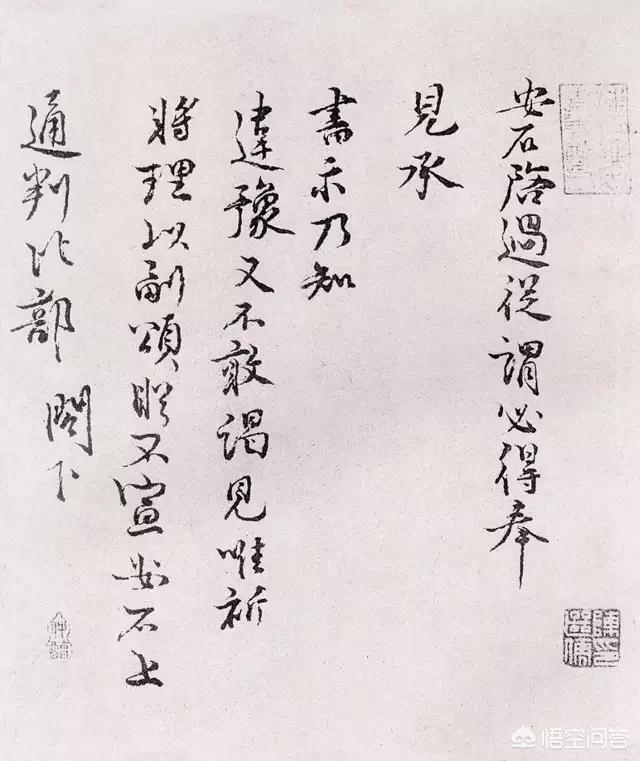 安石啓過從謂必得奉
見承
書示乃知
違豫又不敢謁見唯祈
將理以副頌晱不宣安石上
通判比部 閤下
悟空问答